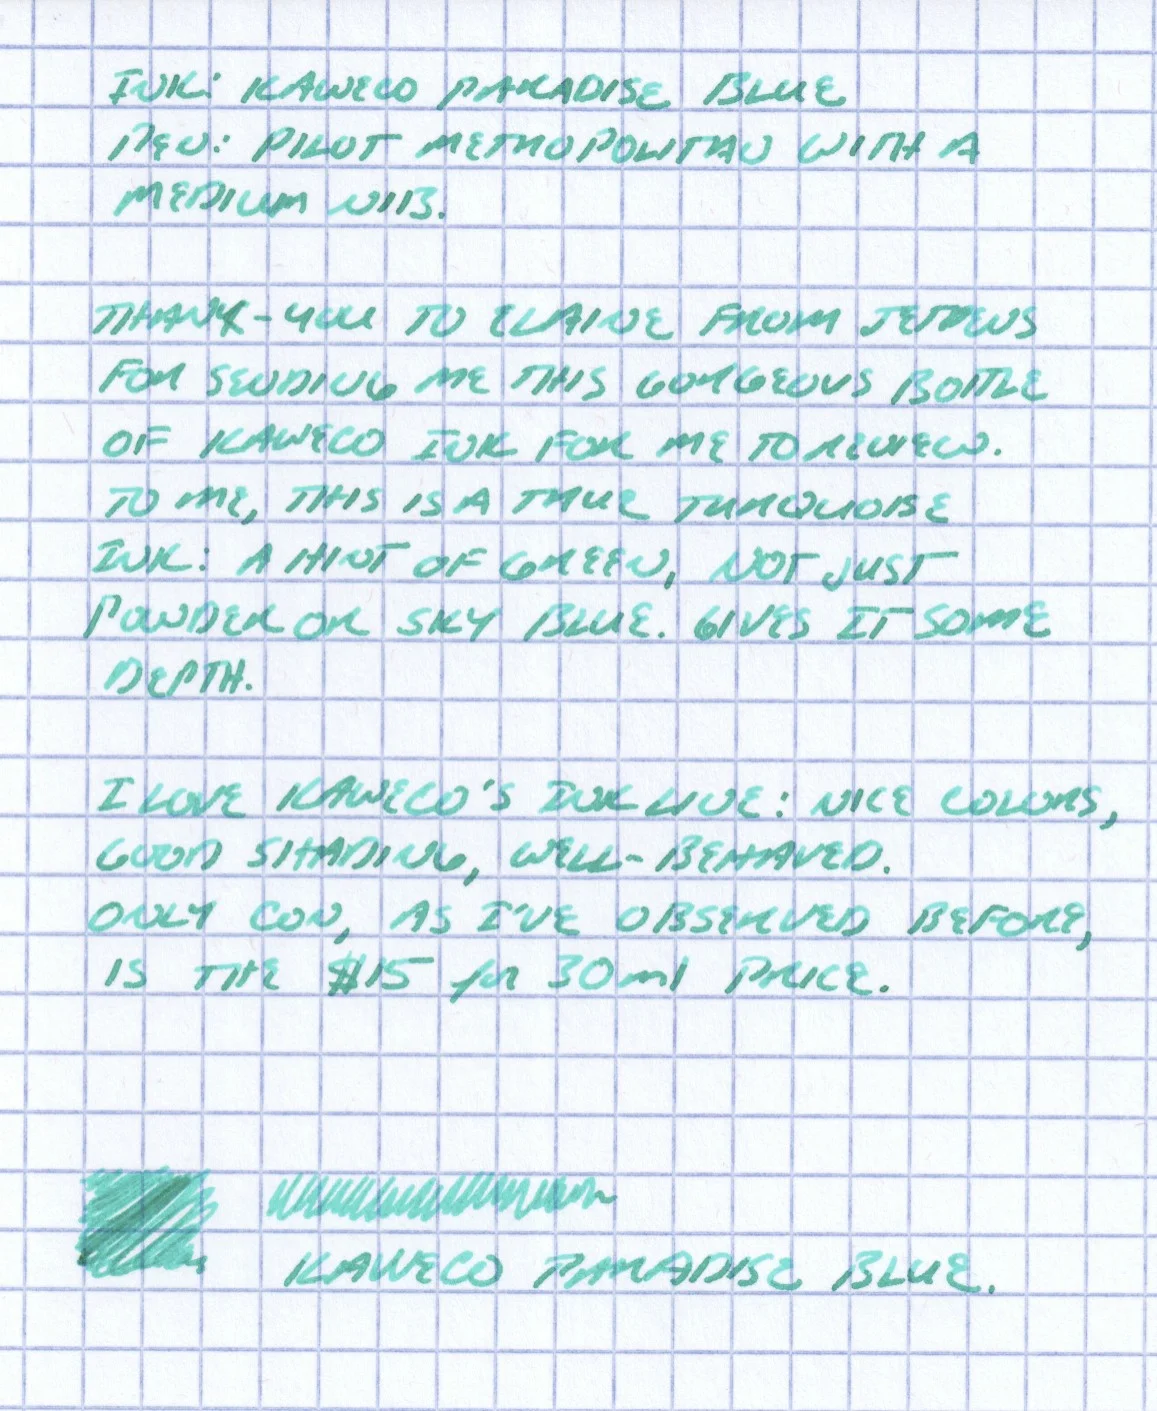 INK: KAWECO PARADISE BLUE
PEN: PILOT METROPOLITAN WITH A
MEDIUM NIB.
THANK-YOU TO ELAINE FROM JETPENS
FOR SENDING ME THIS GORGEOUS BOTTLE
OF KAWECO INK FOR ME TO REVIEW.
TO ME, THIS IS A TRUE TURQUOISE
INK: A HINT OF GREEN, NOT JUST
POWDER OR SKY BLUE. GIVES IT SOME
DEPTH.
I LOVE KAWECO'S INK LINE: NICE COLORS,
GOOD SHADING, WELL-BEHAVED.
ONLY CON, AS I'VE OBSERVED BEFORE,
IS THE $15 for 30ml PRICE.
KAWECO PARADISE BLUE.